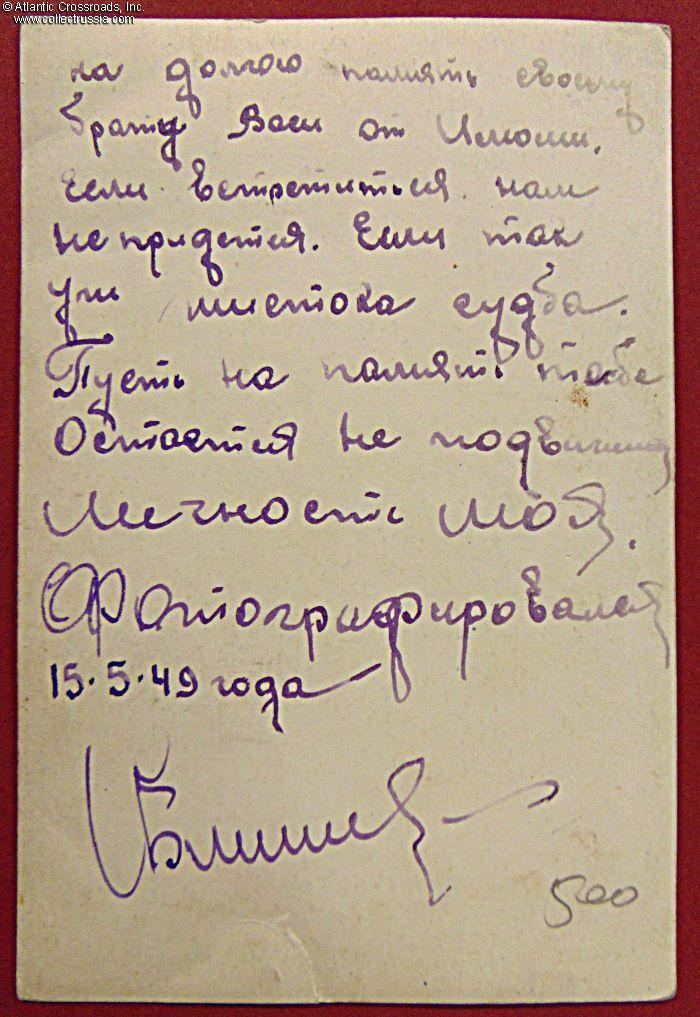 © Atlantic Crossroads, Inc.
www.collectrussia.com
на долгою память своему
брату Васи от
Если встретиться нам
не придется. Если так
уш мистока судба.
Пусть на памить тебе
Остается не подвижная
личность моя.
Фотографировался
15.5.49 года
500